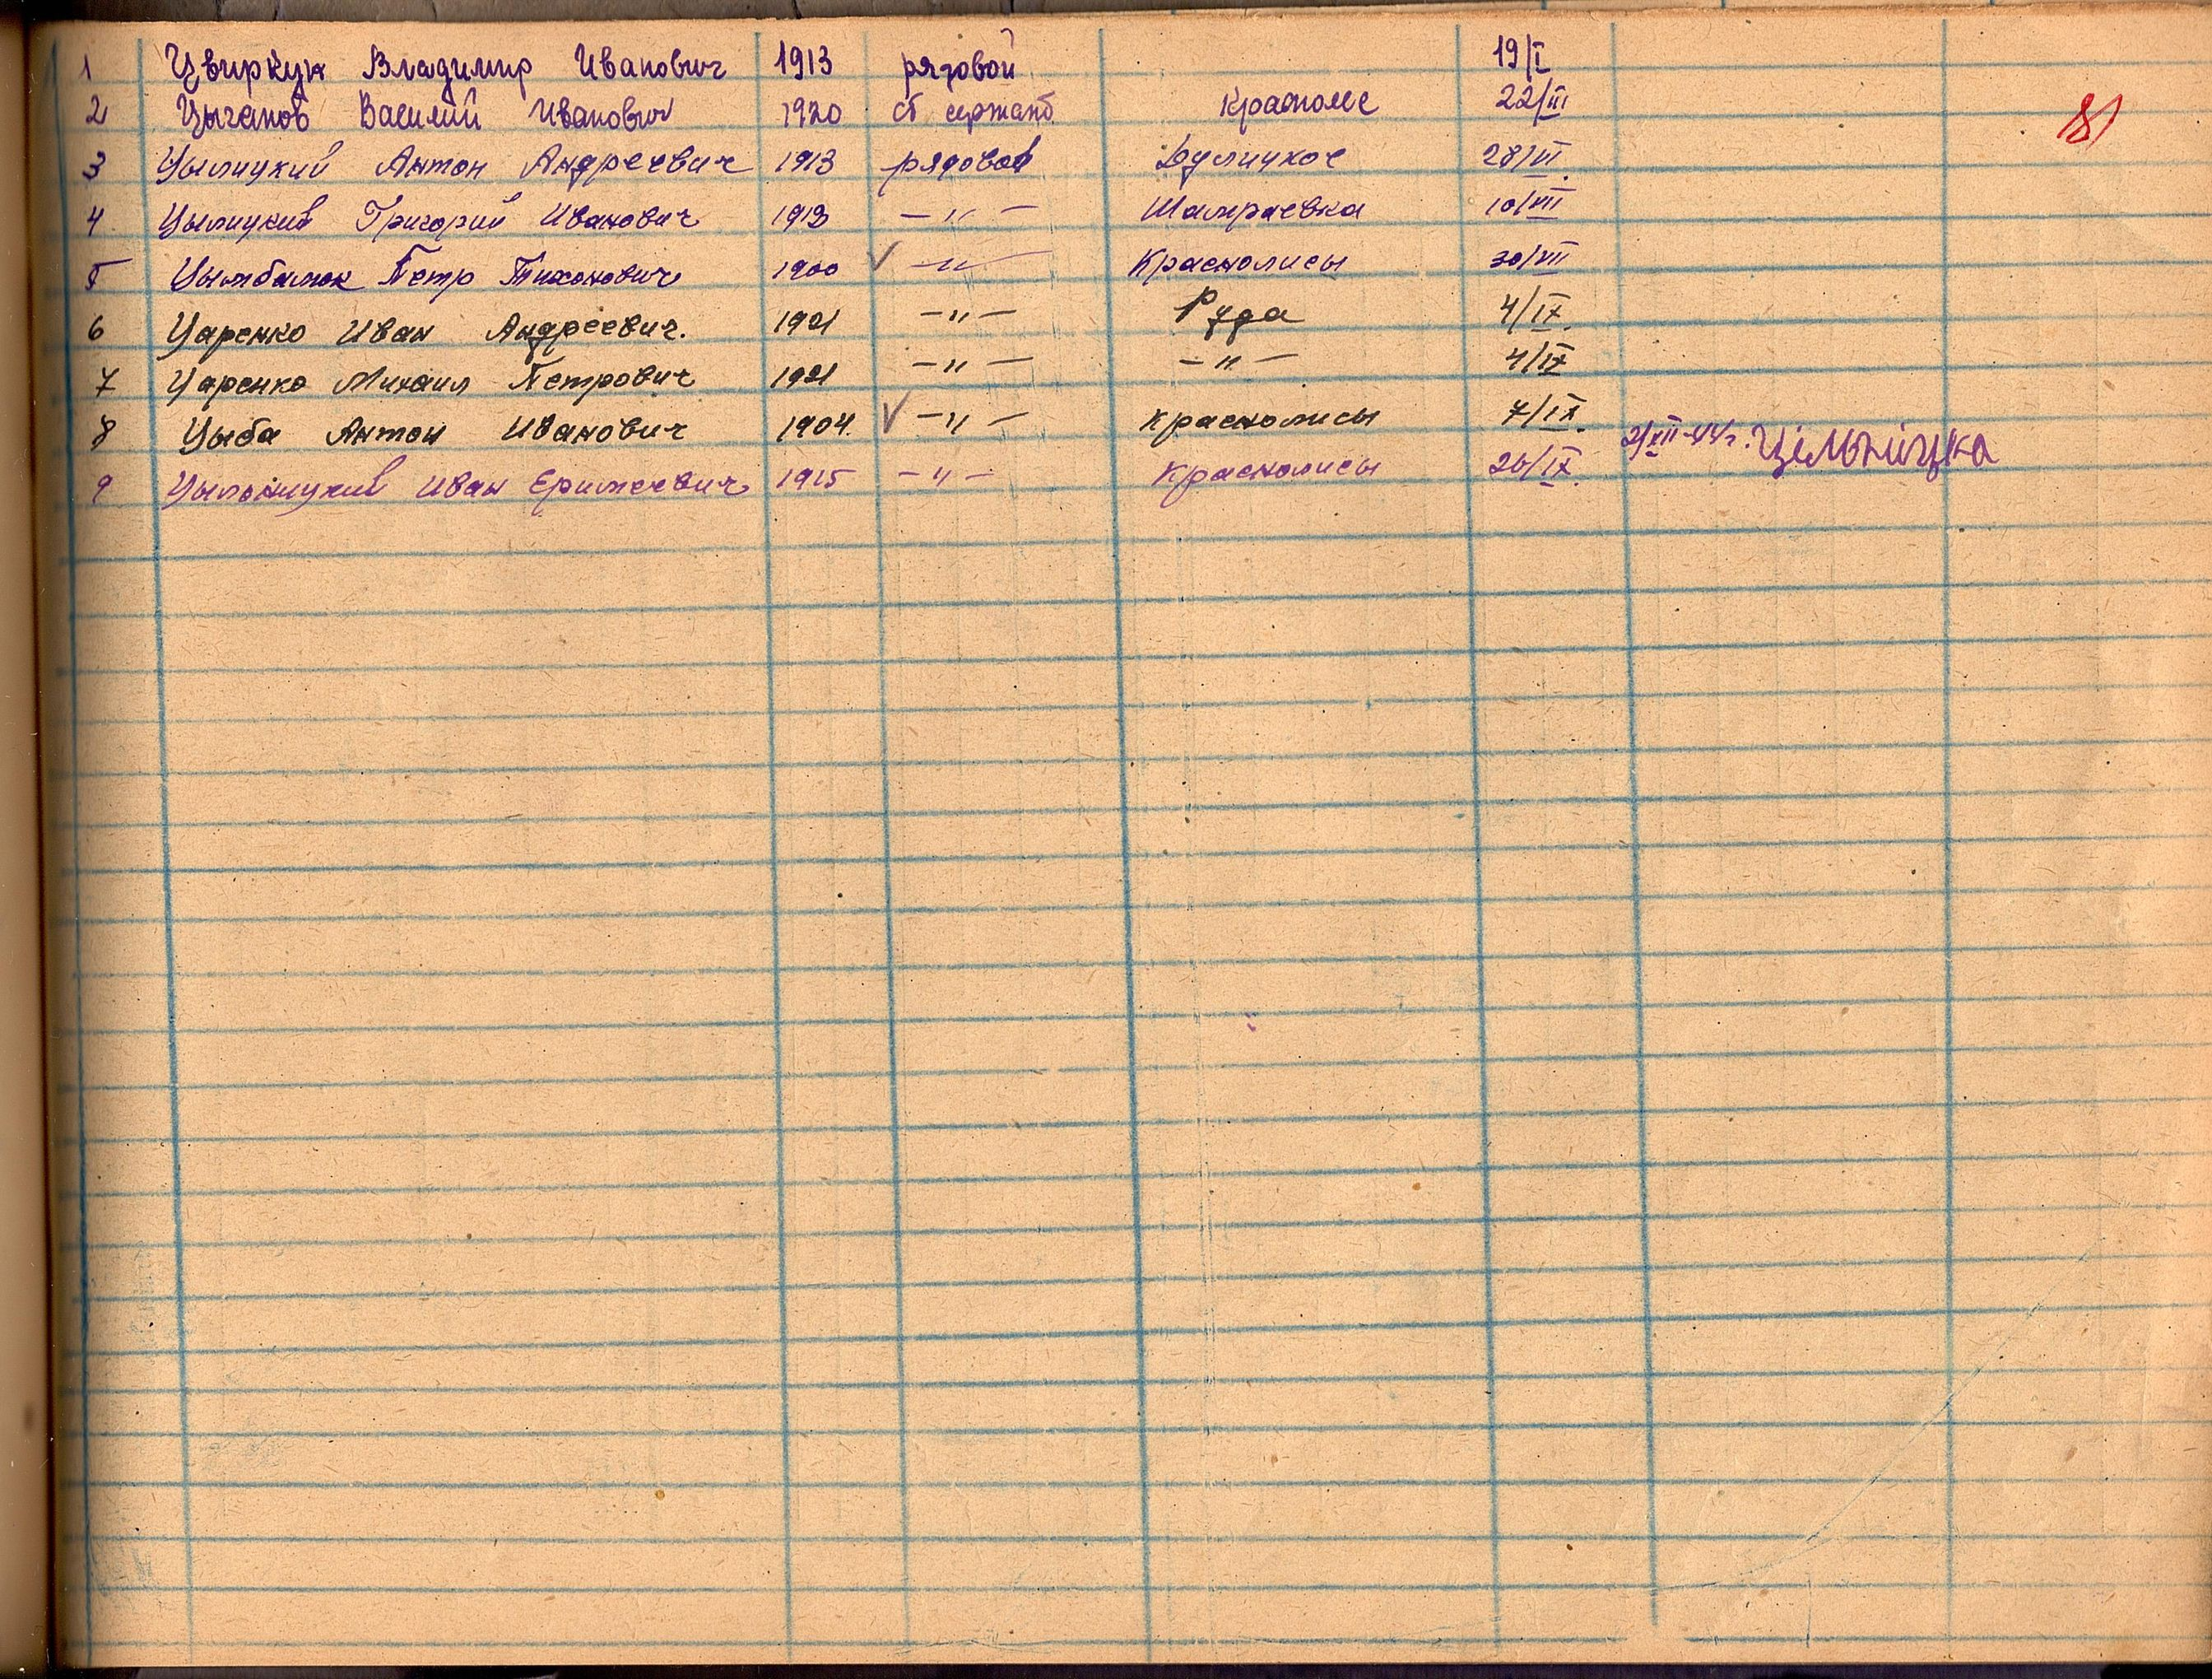 1 Цвиркун Владимир Иванович 1913 рядовой 19/I
2 Цыганов Василий Иванович 1920 ст сержант 22/III
3 Антон Андреевич 1913 рядовой Дулицкое 28/VI.
4 Григорий Иванович 1913 —〃— Шамраевка 10/VIII
5 Цымбалюк Петр Тихонович 1900 ✓ —〃— Краснолисы 30/VIII
6 Царенко Иван Андреевич. 1921 —〃— Руда 4/IX.
7 Царенко Михаил Петрович 1921 —〃— —〃— 4/IX
8 Цыба Антон Иванович 1904. ✓ —〃— Краснолисы 7/IX.
9 Иван 1915 —〃— Краснолисы 26/IX. 2/XII-44г. Цільніцка
81